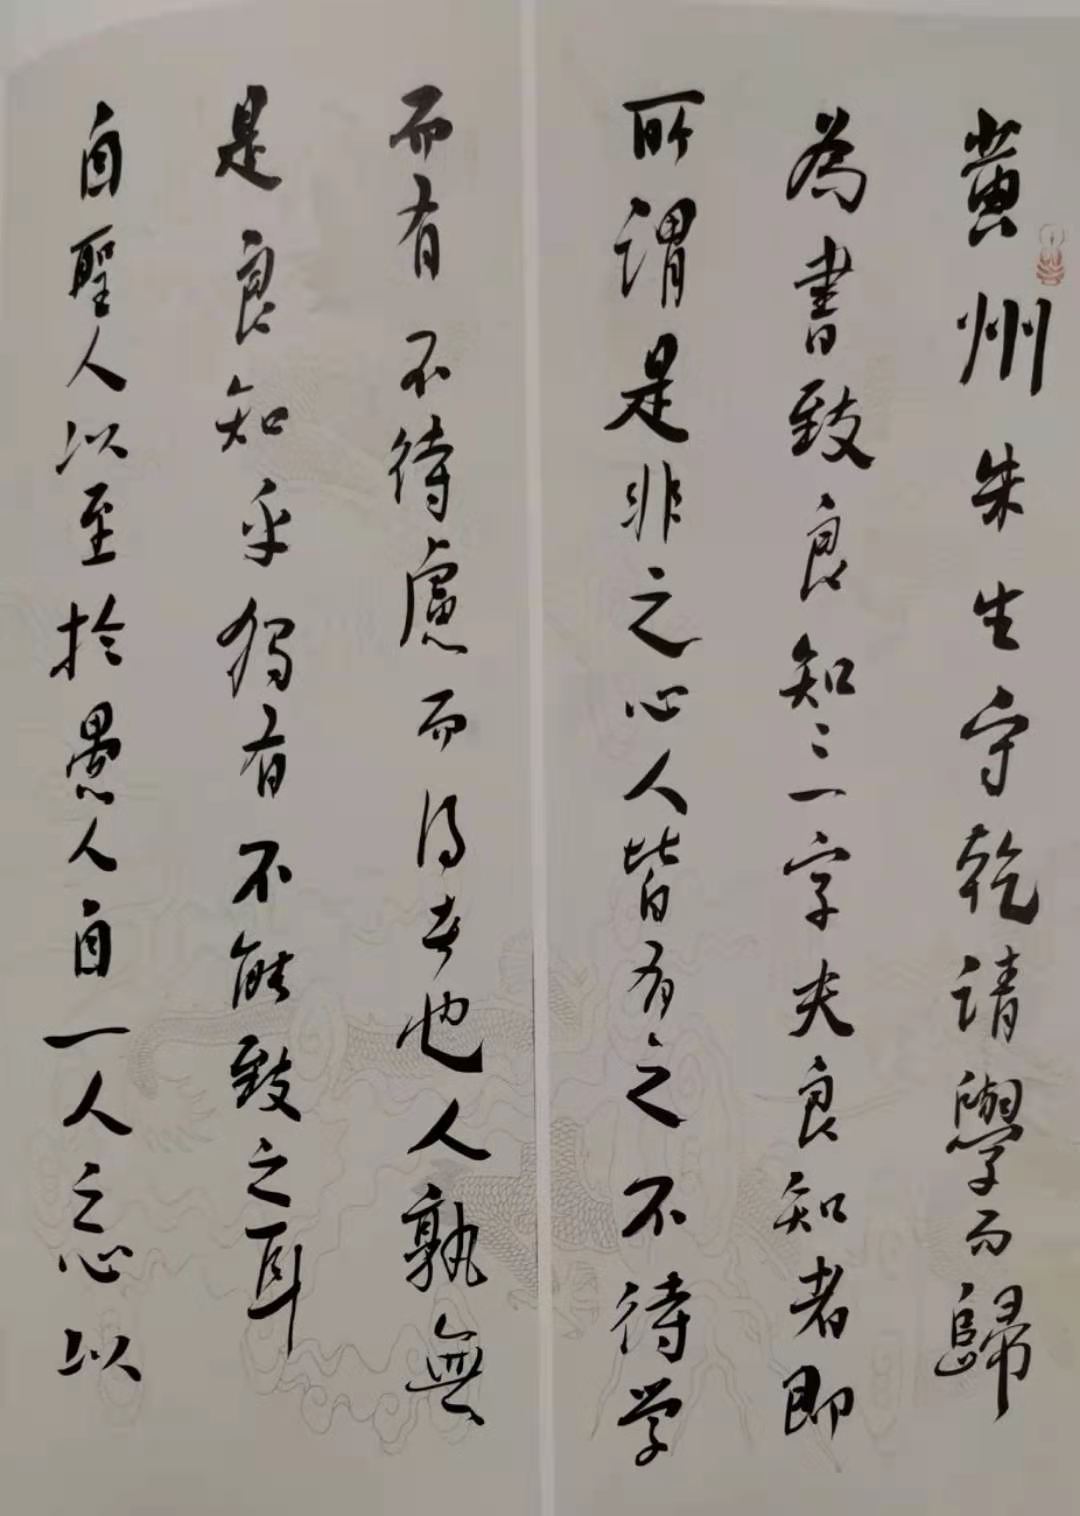 黄州朱生守乾請學而歸
為書致良知三字夫良知者即
所謂是非之心人皆有之不待学
而有不待慮而得者也人孰無
是良知乎獨有不能致之耳
自聖人以至於愚人自一人之心以